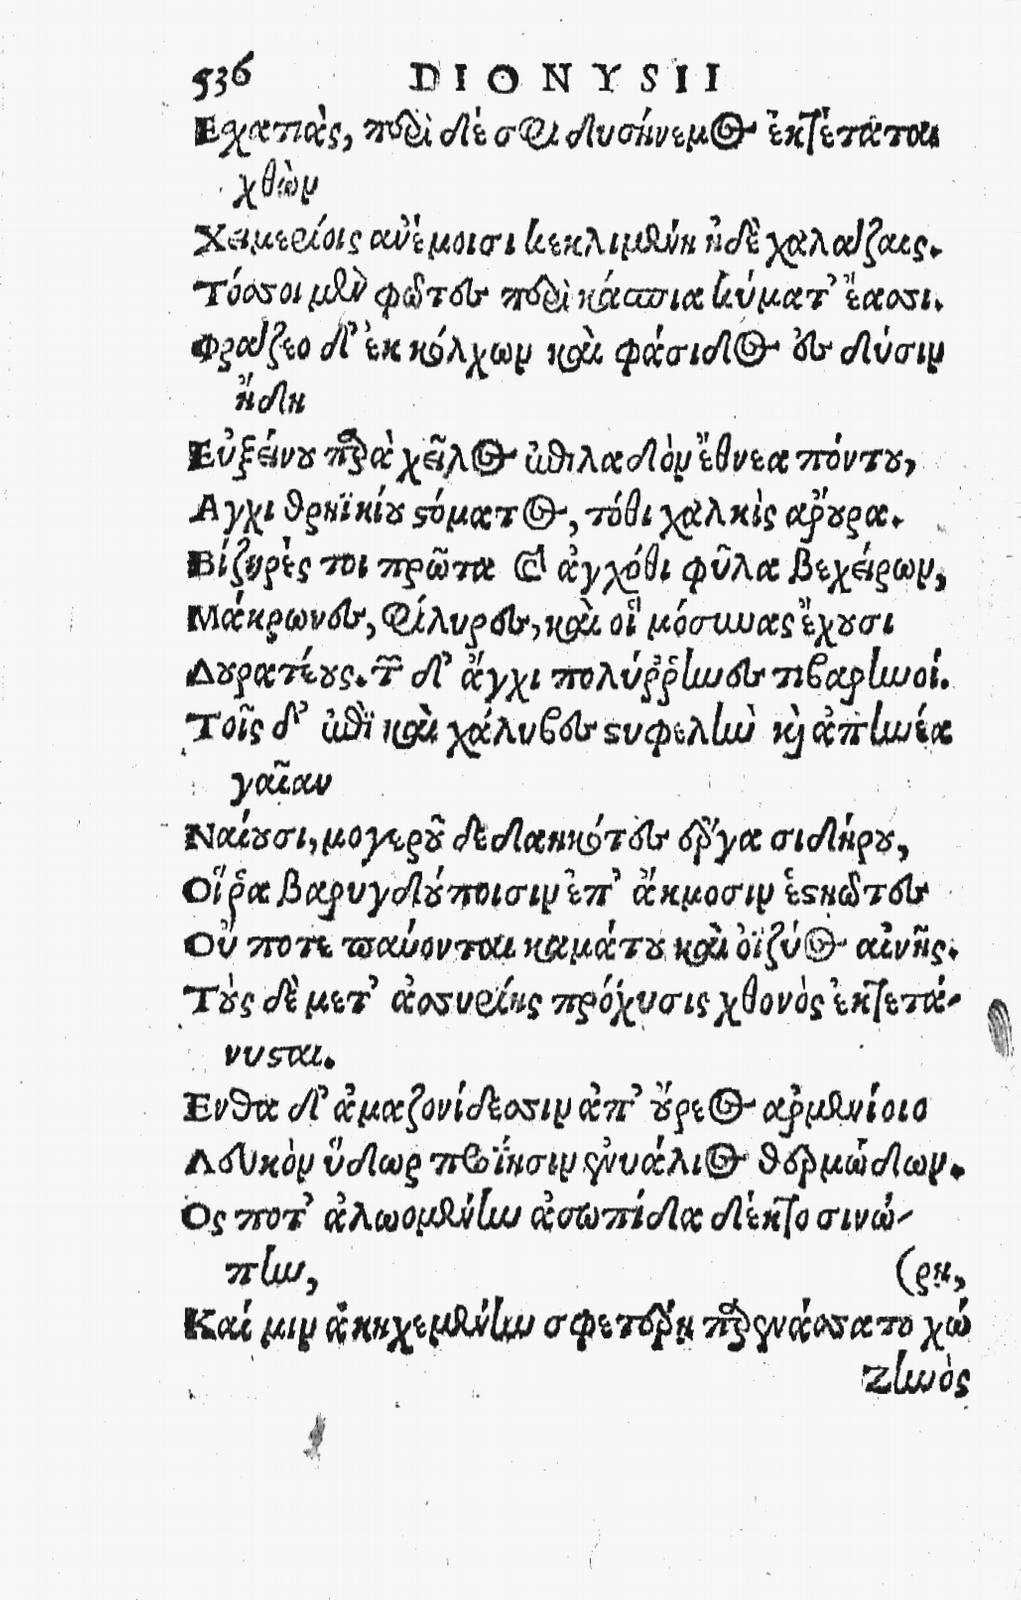 536 DIONYSII
Εσχατιὰς, περὶ δέ σφι δυσήνεμος ἐκτέταται
χθὼν
Χειμερίοις ἀνέμοισι κεκλιμένη ἠδὲ χαλάζαις.
Τόσσοι μὲν φῶτες περὶ κάσπια κύματ' ἔασσι.
Φράζεο δ' ἐκ κόλχων καὶ φάσιδος ἐς δύσιν
ἤδη
Εὐξείνου παρὰ χεῖλος ἐπιλαδὸν ἔθνεα πόντου,
Αγχι θρηϊκίου στόματος, τόθι χαλκὶς ἄρουρα.
Βίζηρές τοι πρῶτα καὶ ἀγχόθι φῦλα βεχείρων,
Μάκρωνες, φίλυρες, καὶ οἳ μόσυνας ἔχουσι
Δουρατέους. τῶν δ' ἄγχι πολύῤῥηνες τιβαρηνοί.
Τοῖς δ' ἐπὶ καὶ χάλυβες στυφελὴν καὶ ἀπηνέα
γαῖαν
Ναίουσι, μογεροῦ δεδαηκότες ἔργα σιδήρου,
Οἵ ῥα βαρυγδούποισιν ἐπ' ἄκμοσιν ἑστηῶτες
Οὔ ποτε παύονται καμάτου καὶ ὀϊζύος αἰνῆς.
Τοὺς δὲ μετ' ἀσσυρίης πρόχυσις χθονὸς ἐκτετά-
νυσται.
Ενθα δ' ἀμαζονίδεσσιν ἀπ' οὔρεος ἀρμενίοιο
Λευκὸν ὕδωρ προΐησιν ἐνυάλιος θερμώδων.
Ος ποτ' ἀλωομένην ἀσωπίδα δέκτο σινώ-
πην, (ρη,
Καί μιν ἀκηχεμένην σφετέρῃ παρενάσσατο χώ
Ζηνὸς